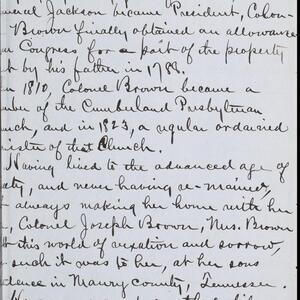 neral Jackson became President, Colon-
Brown finally obtained an allowance
m Congress for a part of the property
t by his father in 1788.
in 1810, Colonel Brown became a
mber of the Cumberland Presbyterian
urch, and in 1823, a regular ordained
nister of that Church.
Having lived to the advanced age of
ety, and never having re-married,
t always making her home with her
n, Colonel Joseph Brown, Mrs. Brown
this world of vexation and sorrow,
such it was to her, at her sons
idence in Maury county, Tennessee.